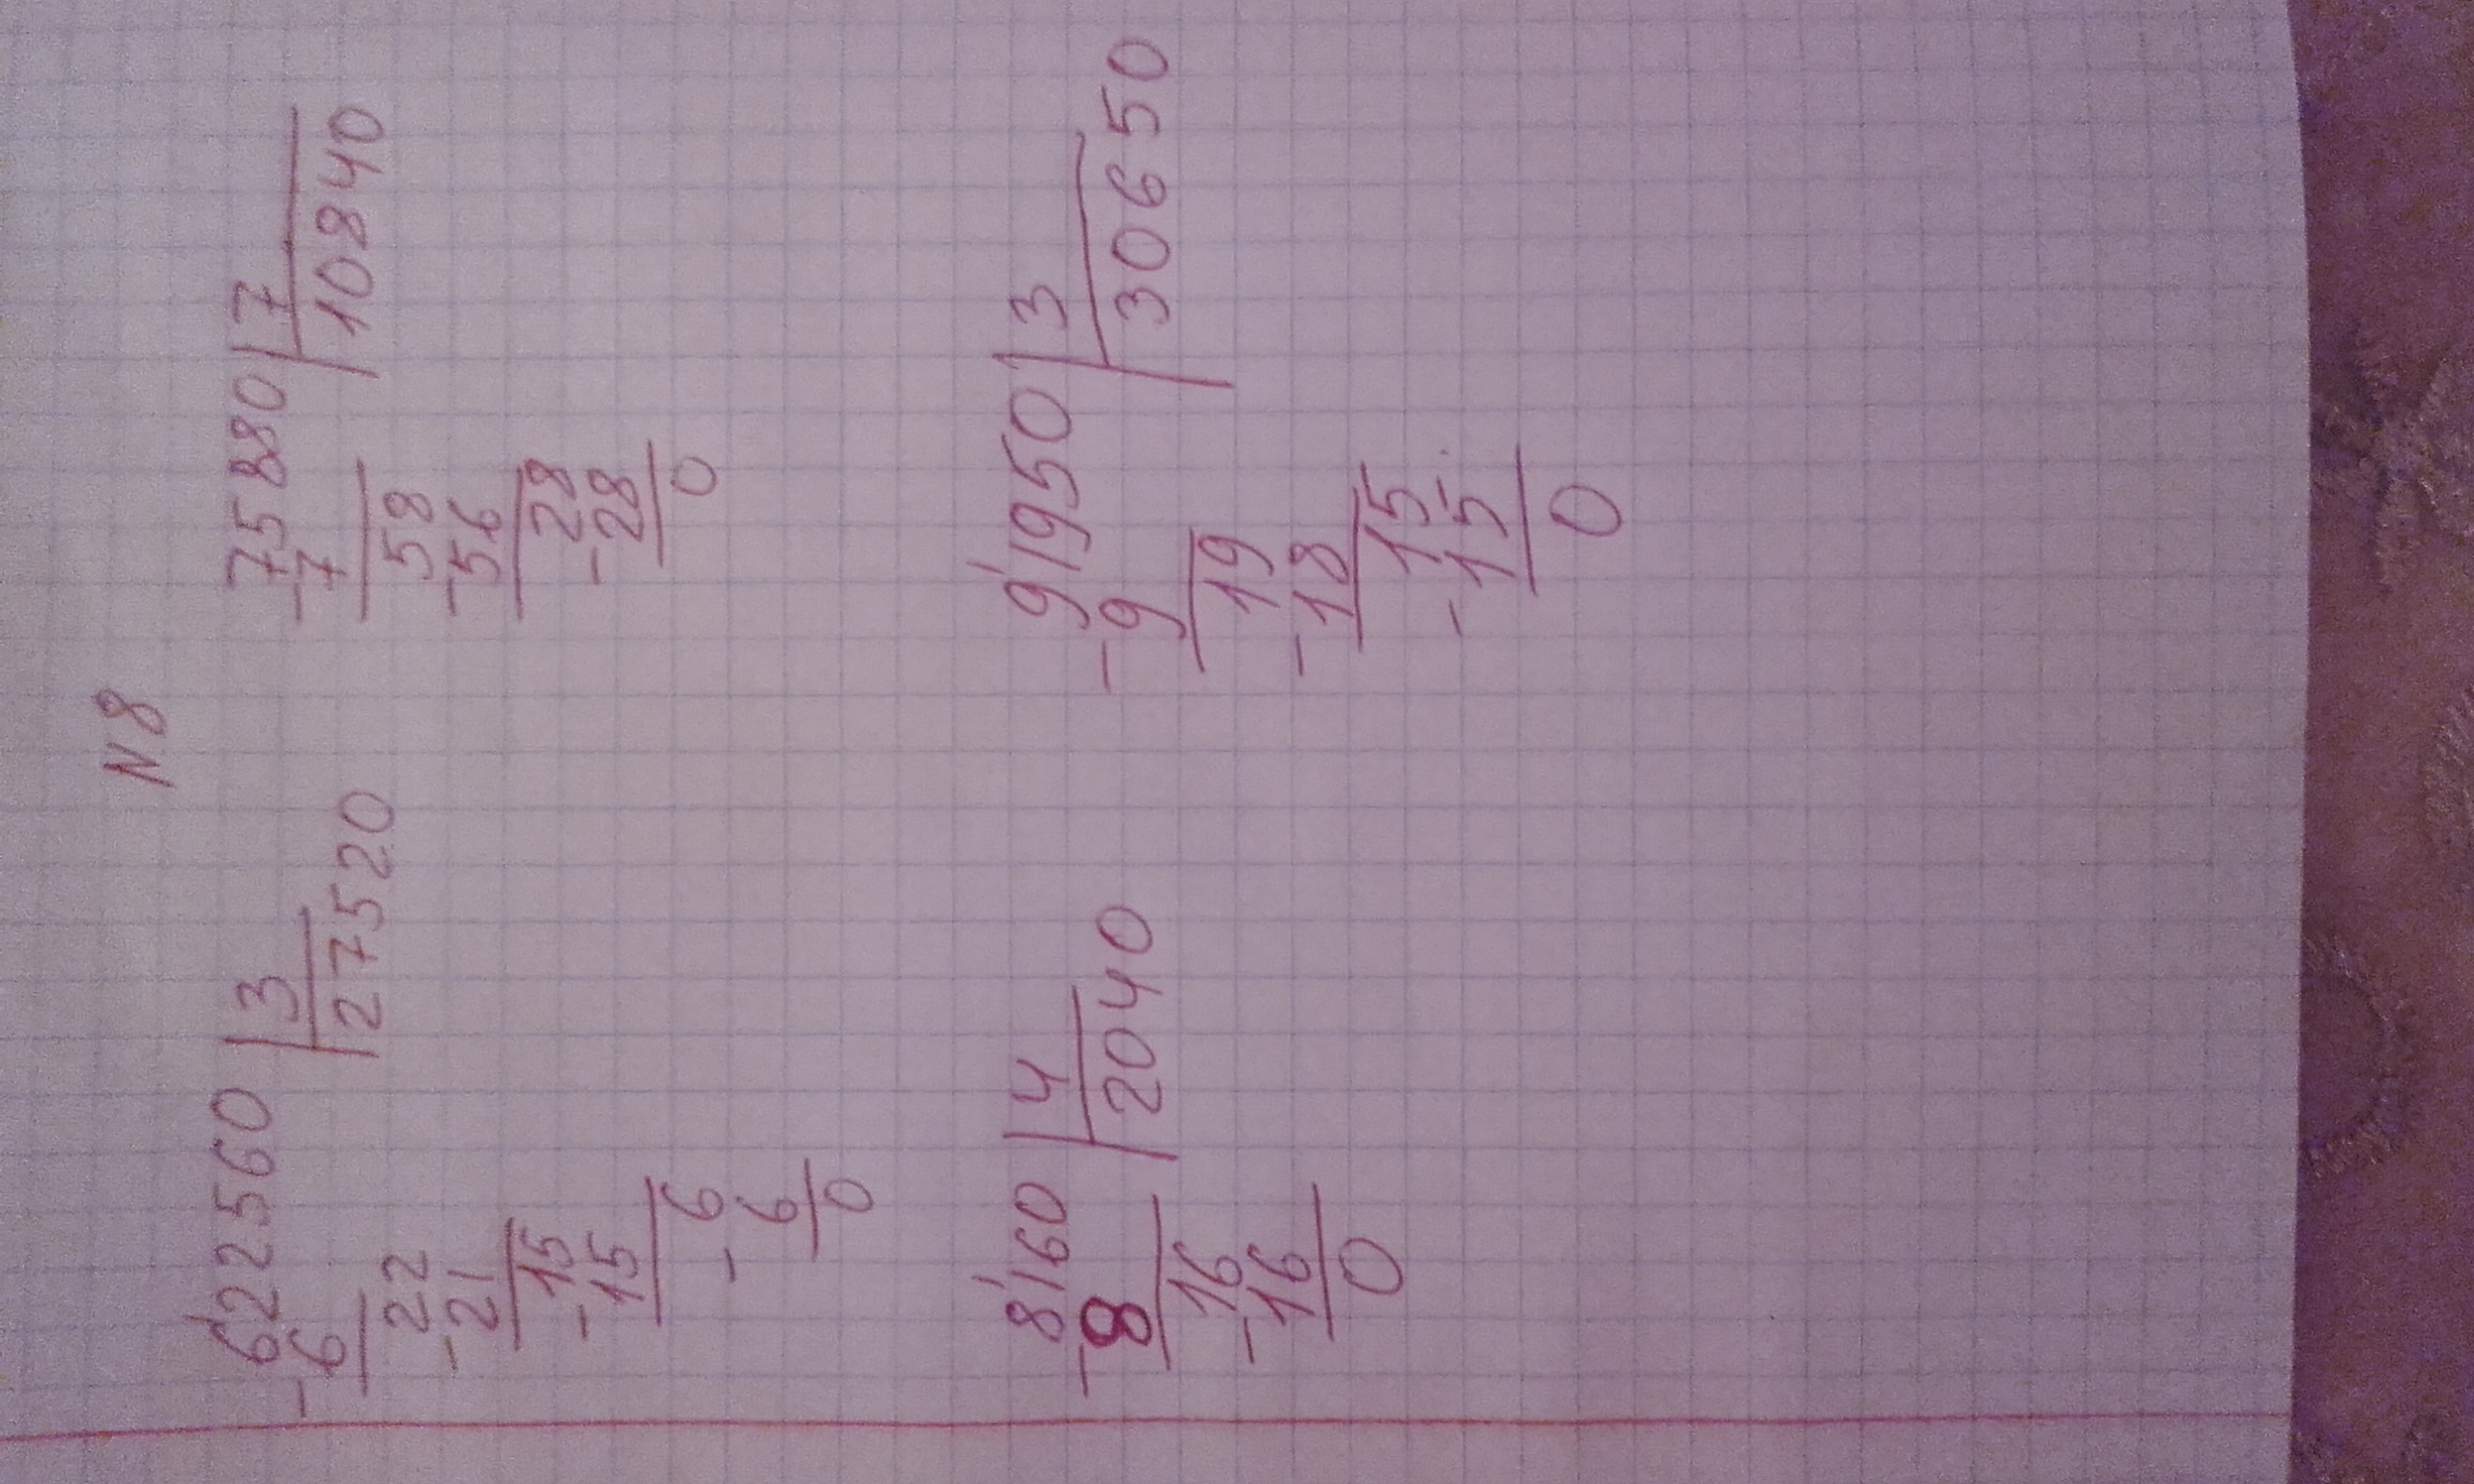 N8
622560 | 3
-6 | 27520
22
-21
15
-15
6
-6
0
75880 | 7
-7 | 10840
58
-56
28
-28
0
8'160 | 4
-8 | 2040
16
-16
0
9'1950 | 3
-9 | 30650
19
-18
15
-15
0